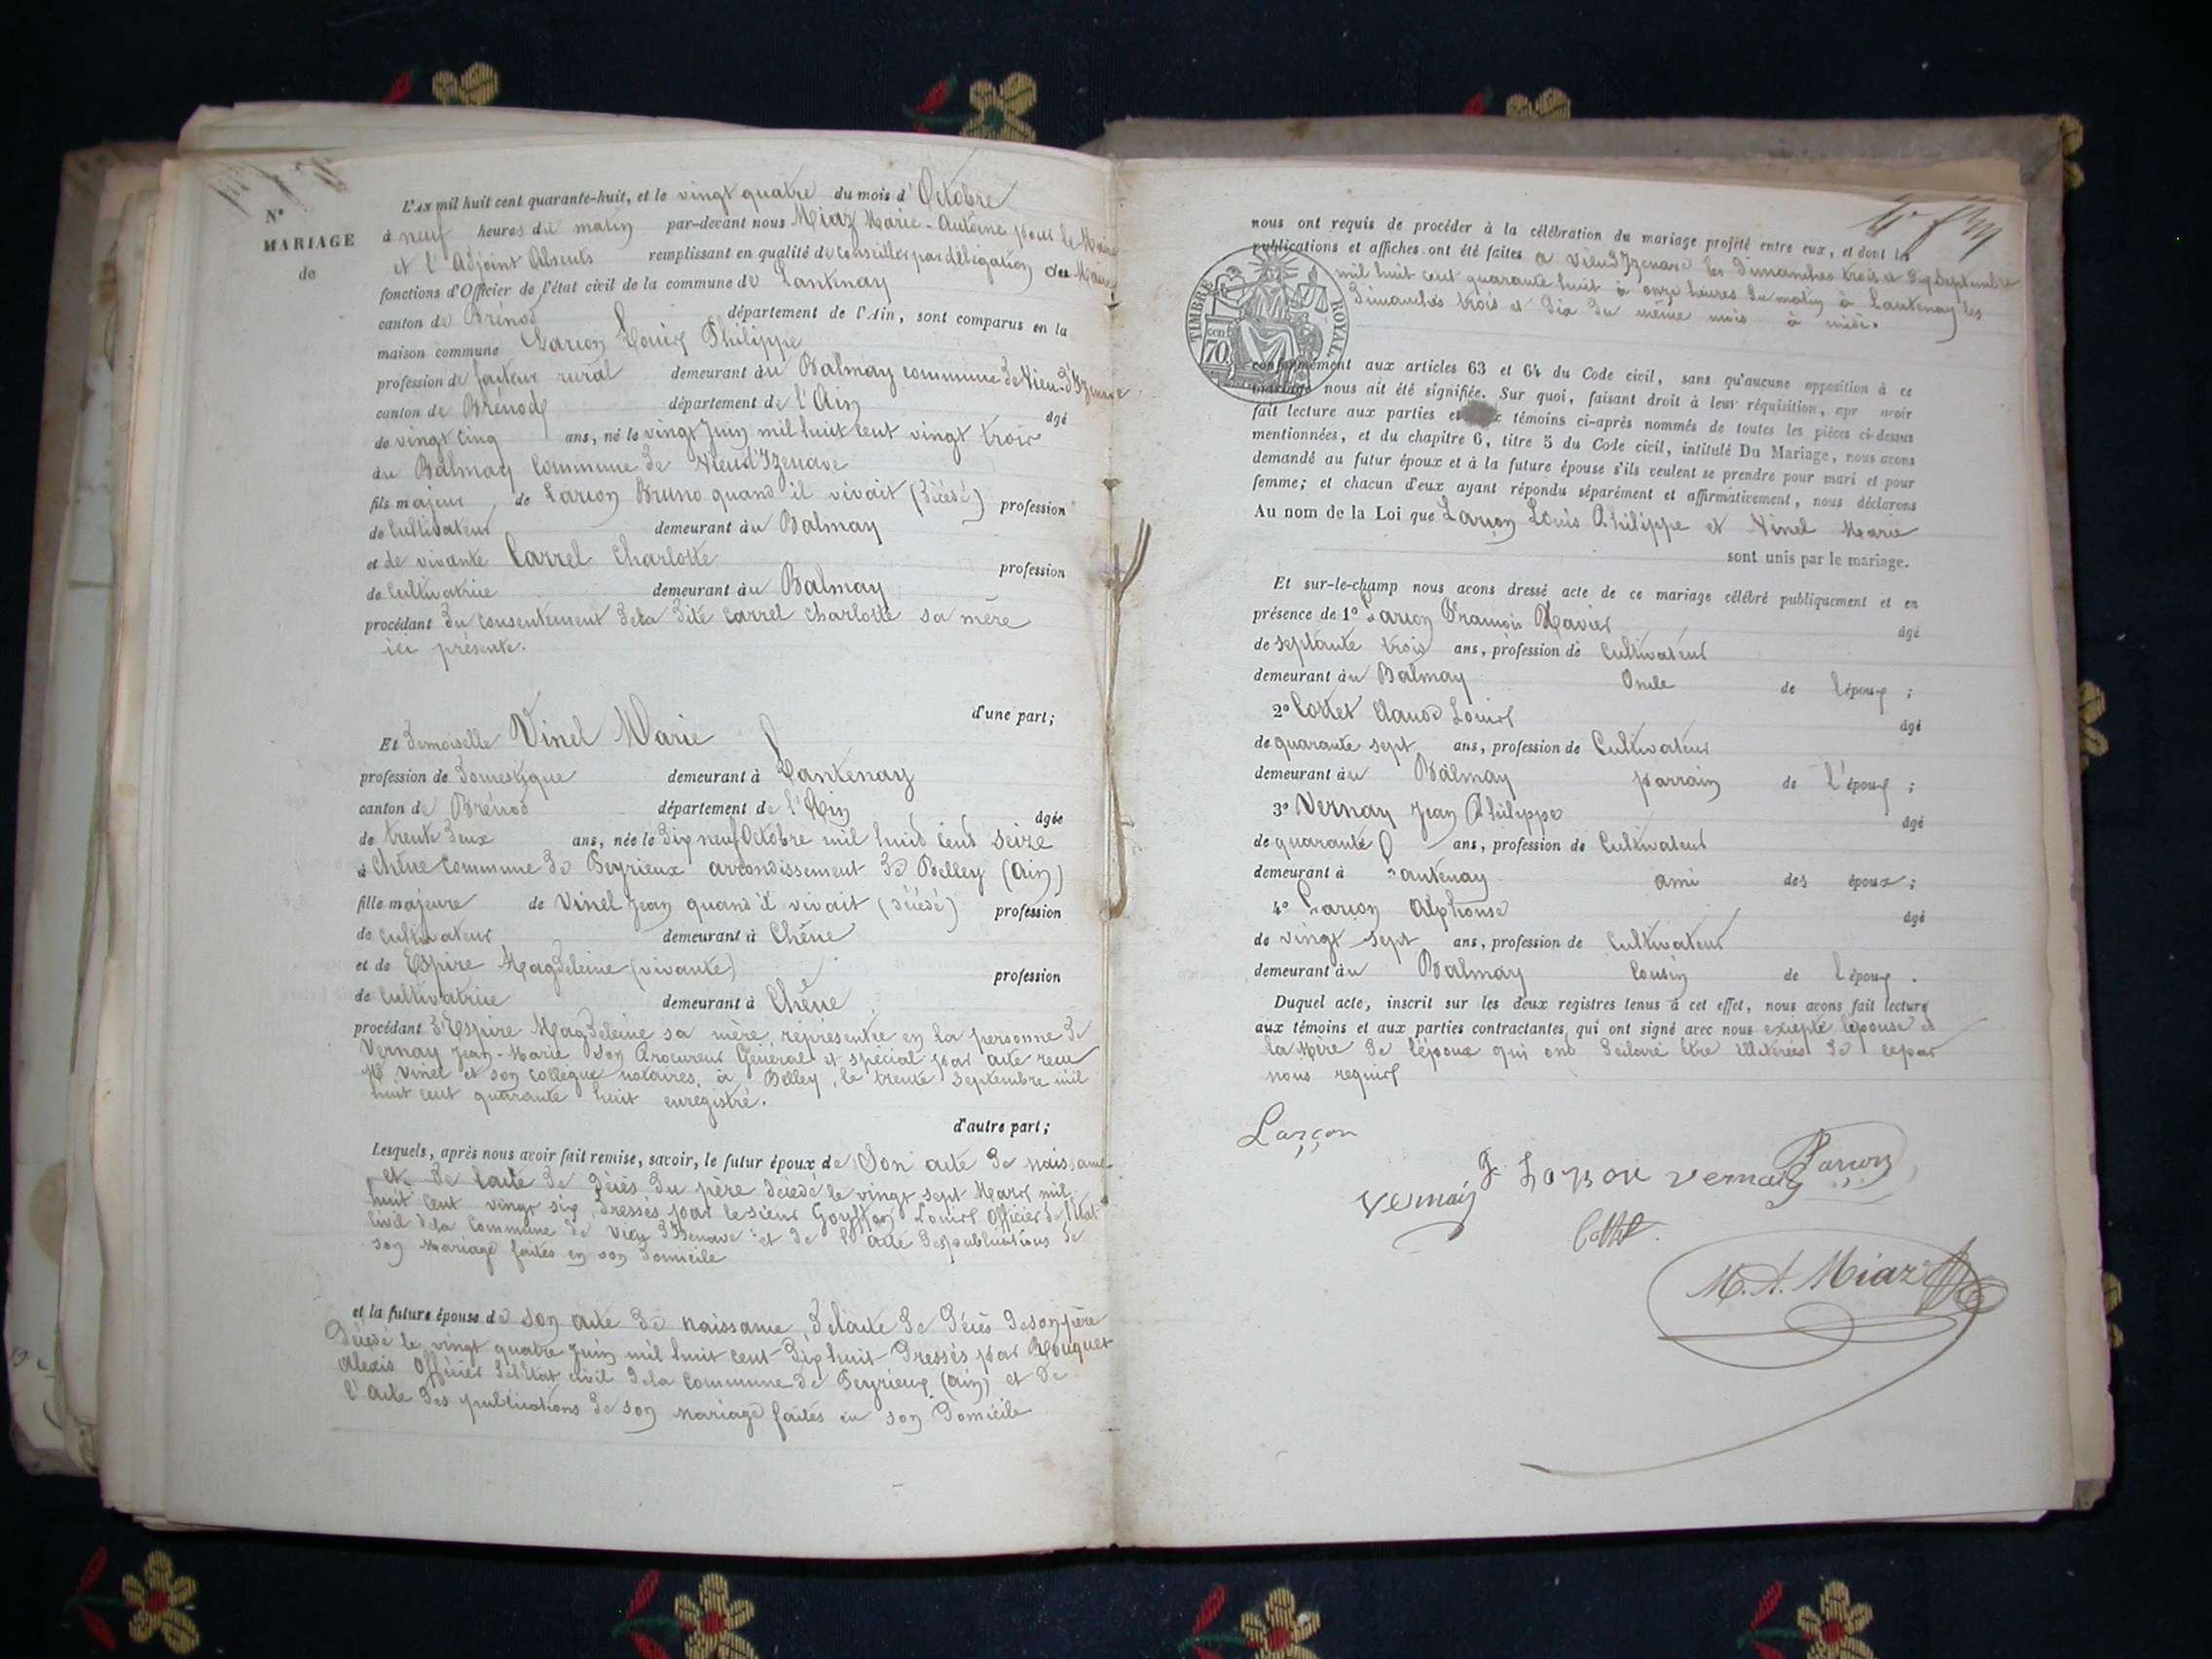 N°
MARIAGE
de
L'AN mil huit cent quarante-huit, et le vingt quatre du mois d'Octobre
à neuf heures du matin par-devant nous Miaz Marie-Antoine pour le Maire
et l'Adjoint Absents remplissant en qualité de Conseiller par délégation du Maire
fonctions d'Officier de l'état civil de la commune de Lantenay
canton de Brénod département de l'Ain, sont comparus en la
maison commune Larçon Louis Philippe
profession de facteur rural demeurant au Balmay commune de Vieu-d'Izenave
canton de Brénod département de l'Ain âgé
de vingt cinq ans, né le vingt Juin mil huit cent vingt trois
au Balmay Commune de Vieud'Izenave
fils majeur de Larçon Bruno quand il vivait (décédé) profession
de Cultivateur demeurant au Balmay
et de vivante Carrel Charlotte profession
de Cultivatrice demeurant au Balmay
procédant du consentement de la dite Carrel Charlotte sa mère
ici présente.
d'une part;
Et demoiselle Vinel Marie
profession de Domestique demeurant à Lantenay
canton de Brénod département de l'Ain âgée
de trente deux ans, née le dix neuf Octobre mil huit cent seize
à Chêne Commune de Peyrieux arrondissement de Belley (Ain)
fille majeure de Vinel Jean quand il vivait (décédé) profession
de Cultivateur demeurant à Chêne
et de Espire Magdeleine (vivante) profession
de Cultivatrice demeurant à Chêne
procédant d'Espire Magdeleine sa mère, représentée en la personne de
Vernay Jean-Marie son Procureur Général et spécial par acte reçu
M. Vinel et son collègue notaires, à Belley, le trente Septembre mil
huit cent quarante huit enregistré.
d'autre part;
Lesquels, après nous avoir fait remise, savoir, le futur époux de Son acte de naissance
et de l'acte de décès du père décédé le vingt sept Mars mil
huit cent vingt six, dressés par le sieur Louis Officier de l'état
Civil de la Commune de Vieu d'Izenave et de l'acte des publications de
son Mariage faites en son domicile
et la future épouse de son acte de naissance, de l'acte de décès de son père
décédé le vingt quatre Juin mil huit cent dix huit dressés par Bouquet
Alexis Officier de l'état civil de la Commune de Peyrieux (ain) et de
l'acte des publications de son mariage faites en son Domicile
nous ont requis de procéder à la célébration du mariage projeté entre eux, et dont les
publications et affiches ont été faites à Vieud'Izenave les dimanches trois et dix Septembre
mil huit cent quarante huit à onze heures du matin à Lantenay les
dimanches trois et dix du même mois à midi.
TIMBRE ROYAL
70 cent
conformément aux articles 63 et 64 du Code civil, sans qu'aucune opposition à ce
mariage nous ait été signifiée. Sur quoi, faisant droit à leur réquisition, apr avoir
fait lecture aux parties et x témoins ci-après nommés de toutes les pièces ci-dessus
mentionnées, et du chapitre 6, titre 5 du Code civil, intitulé Du Mariage, nous avons
demandé au futur époux et à la future épouse s'ils veulent se prendre pour mari et pour
femme; et chacun d'eux ayant répondu séparément et affirmativement, nous déclarons
Au nom de la Loi que Larçon Louis Philippe et Vinel Marie
sont unis par le mariage.
Et sur-le-champ nous avons dressé acte de ce mariage célébré publiquement et en
présence de 1° Larçon François Xavier âgé
de septante trois ans, profession de Cultivateur
demeurant au Balmay Oncle de l'époux ;
2° Cottet Claude Louis âgé
de quarante sept ans, profession de Cultivateur
demeurant au Balmay parrain de l'époux ;
3° Vernay Jean Philippe âgé
de quarante ans, profession de Cultivateur
demeurant à Lantenay ami des époux ;
4° Larçon Alphonse âgé
de vingt sept ans, profession de Cultivateur
demeurant au Balmay Cousin de l'époux .
Duquel acte, inscrit sur les deux registres tenus à cet effet, nous avons fait lecture
aux témoins et aux parties contractantes, qui ont signé avec nous excepté l'épouse et
la Mère de l'époux qui ont déclaré être illettrées de ce par
nous requis
Larçon
Vernay F. Larson Vernay Larçon
Cottet
M. A. Miaz